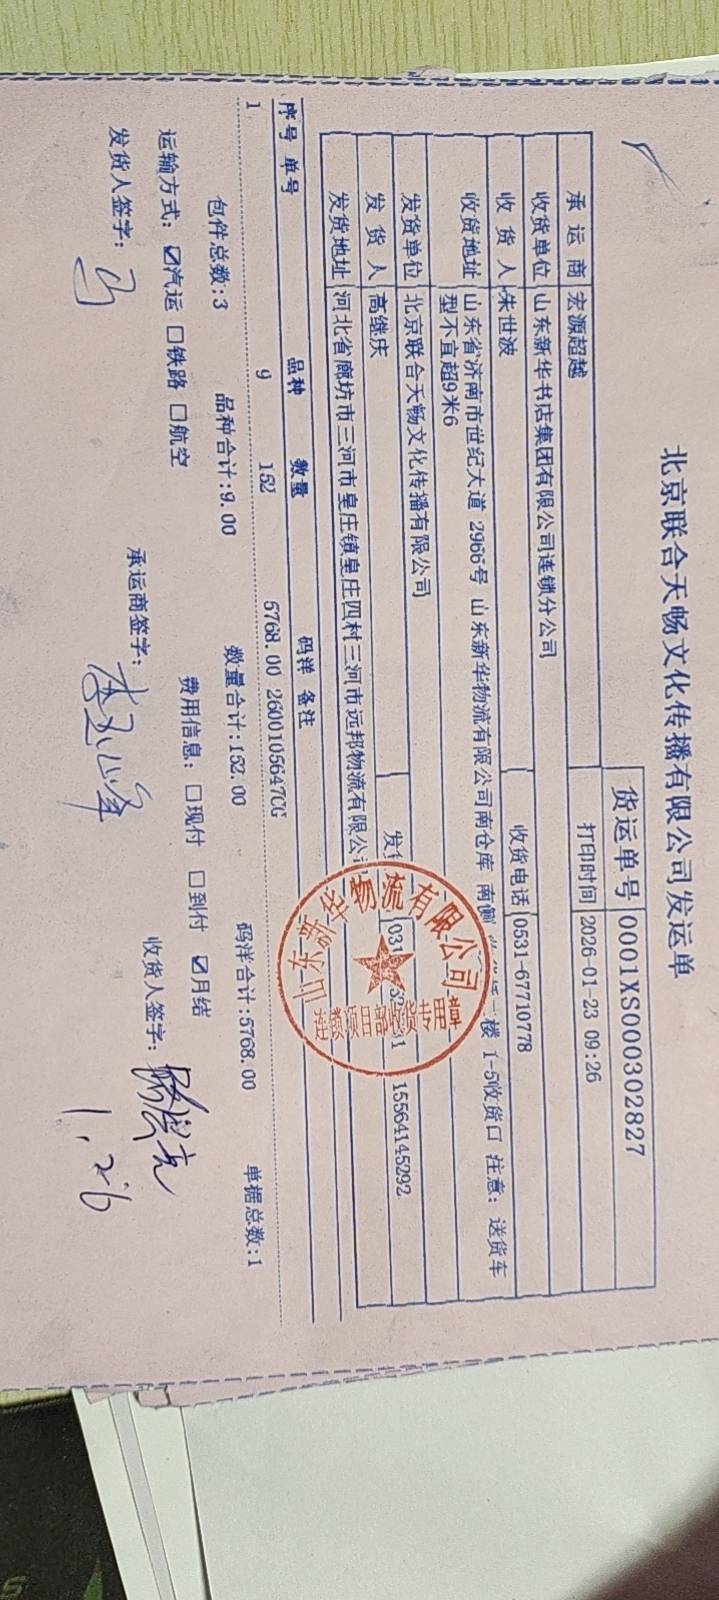 北京联合天畅文化传播有限公司发运单
货运单号 0001XS000302827
承运商 宏源超越 打印时间 2026-01-23 09:26
收货单位 山东新华书店集团有限公司连锁分公司
收货人 朱世波 收货电话 0531-67710778
收货地址 山东省济南市世纪大道 2966号 山东新华物流有限公司南仓库 南侧 楼 1-5收货口 注意: 送货车
型不宜超9米6
发货单位 北京联合天畅文化传播有限公司
发货人 高继庆 15564145292
发货地址 河北省廊坊市三河市皇庄镇皇庄四村三河市远邦物流有限公
山东新华物流有限公司
连锁项目部收货专用章
序号 单号 品种 数量 码洋 备注
1 9 152 5768.00 2600105647CG
包件总数:3 品种合计:9.00 数量合计:152.00 码洋合计:5768.00 单据总数:1
运输方式: ☑汽运 □铁路 □航空 费用信息: □现付 □到付 ☑月结
发货人签字: 马 承运商签字: 收货人签字:
1.26